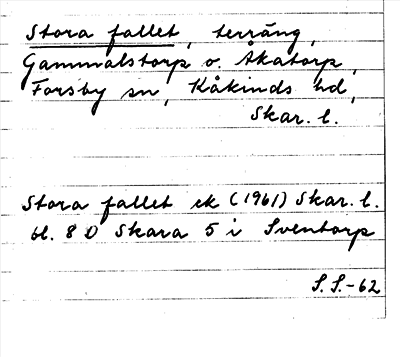 Stora fallet, terräng,
Gammalstorp o. Åkatorp,
Forsby sn, Kåkinds hd,
Skar. l.
Stora fallet ek (1961) Skar. l.
bl. 8 D Skara 5 i Sventorp
S.S.-62